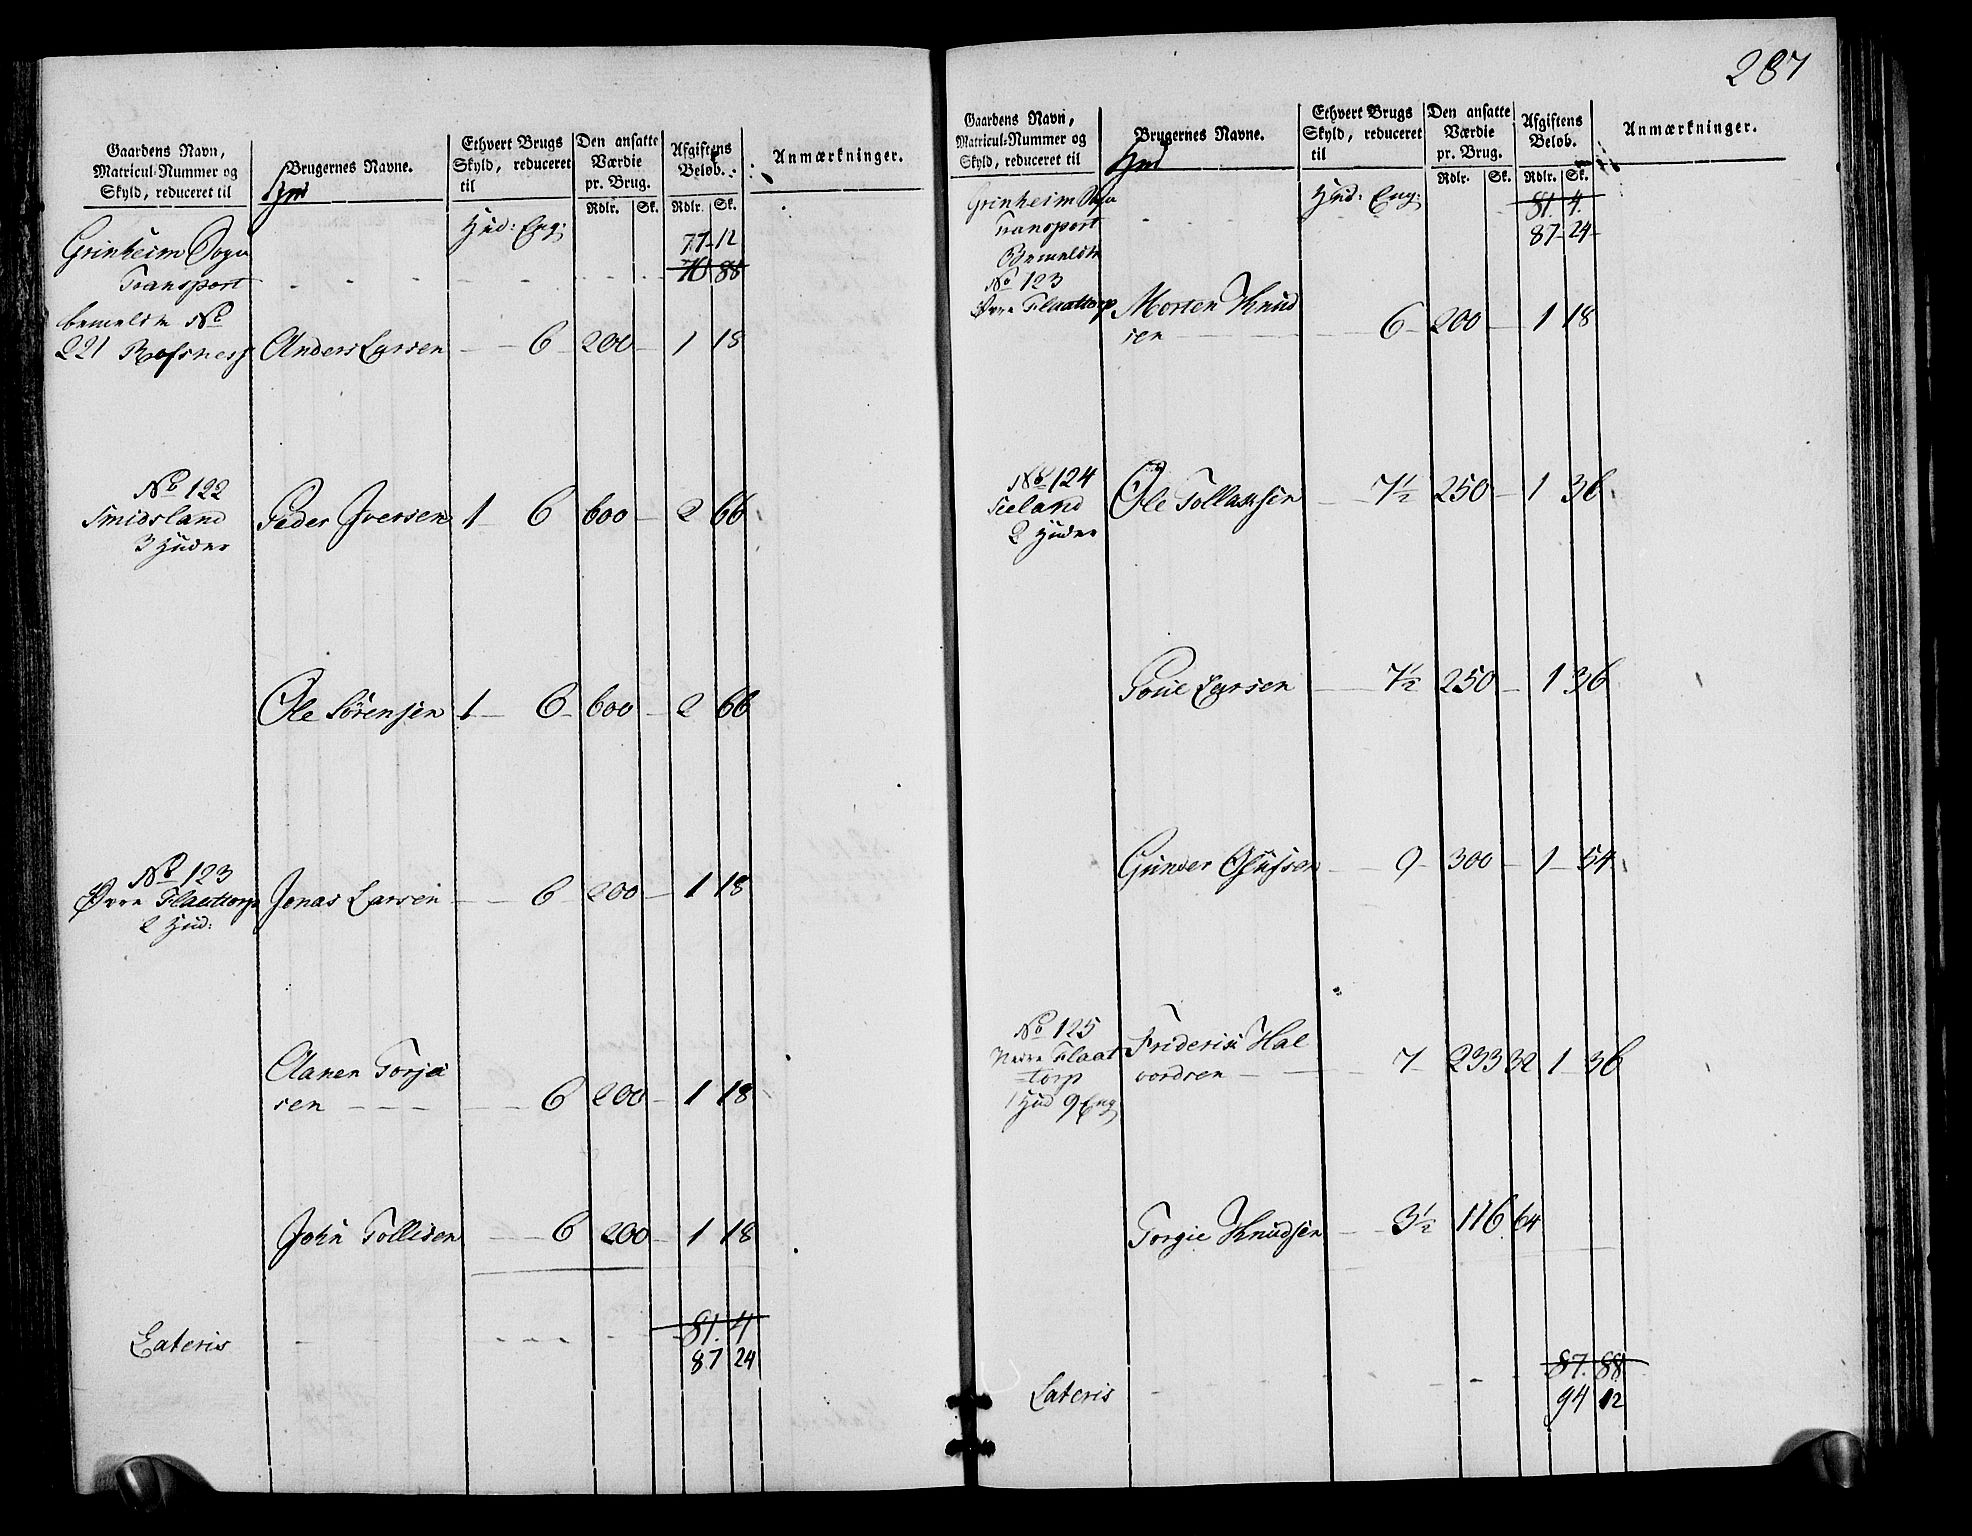 Gaardens Navn, Matricul-Nummer og Skyld, reduceret til
Brugernes Navne.
Ethvert Brugs Skyld, reduceret til
Den ansatte Værdie pr. Brug.
Afgiftens Beløb.
Anmærkninger.
Rdlr. Sk. Rdlr. Sk.
Hud: Eng:
Grinheim Sogn 77 12
Transport 76 88
bemeldte No
221 Rosness Anders Larsen 6 200 1 18
No 122
Smidsland Peder Iversen 1 6 600 2 66
3 Huder
Ole Sörensen 1 6 600 2 66
No 123
Øvre Flaattorp Jonas Larsen 6 200 1 18
2 Hud:
Aanen Torje
sen 6 200 1 18
John Tollisen 6 200 1 18
81. 4
Lateris 87 24
287
Gaardens Navn, Matricul-Nummer og Skyld, reduceret til
Brugernes Navne.
Ethvert Brugs Skyld, reduceret til
Den ansatte Værdie pr. Brug.
Afgiftens Beløb.
Anmærkninger.
Rdlr. Sk. Rdlr. Sk.
Hud: Eng:
Grinheim Sogn 81. 4.
Transport 87 24
Bemeldte
No 123
Øvre Flaattorp Morten Knud
sen 6 200 1 18
No 124
Seeland Ole Tollaksen 7½ 250 1 36
2 Huder
Poul Larsen 7½ 250 1 36
Gunder Olufsen 9 300 1 54
No 125
Nedre Flaat Friderik Hal
=torp vordsen 7 233 32 1 36
1 Hud 9 Eng
Torgie Knudsen 3½ 116. 64
87. 88
Lateris 94 12